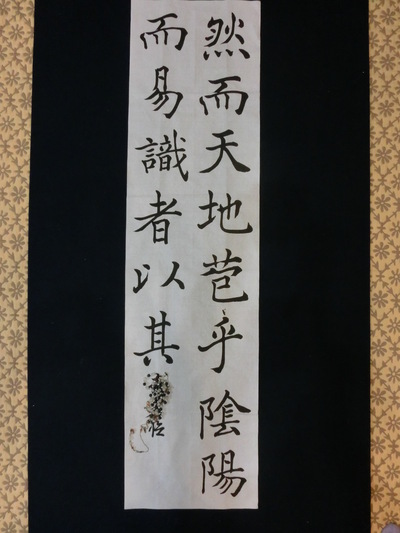 然而天地苞乎陰陽
而易識者以其